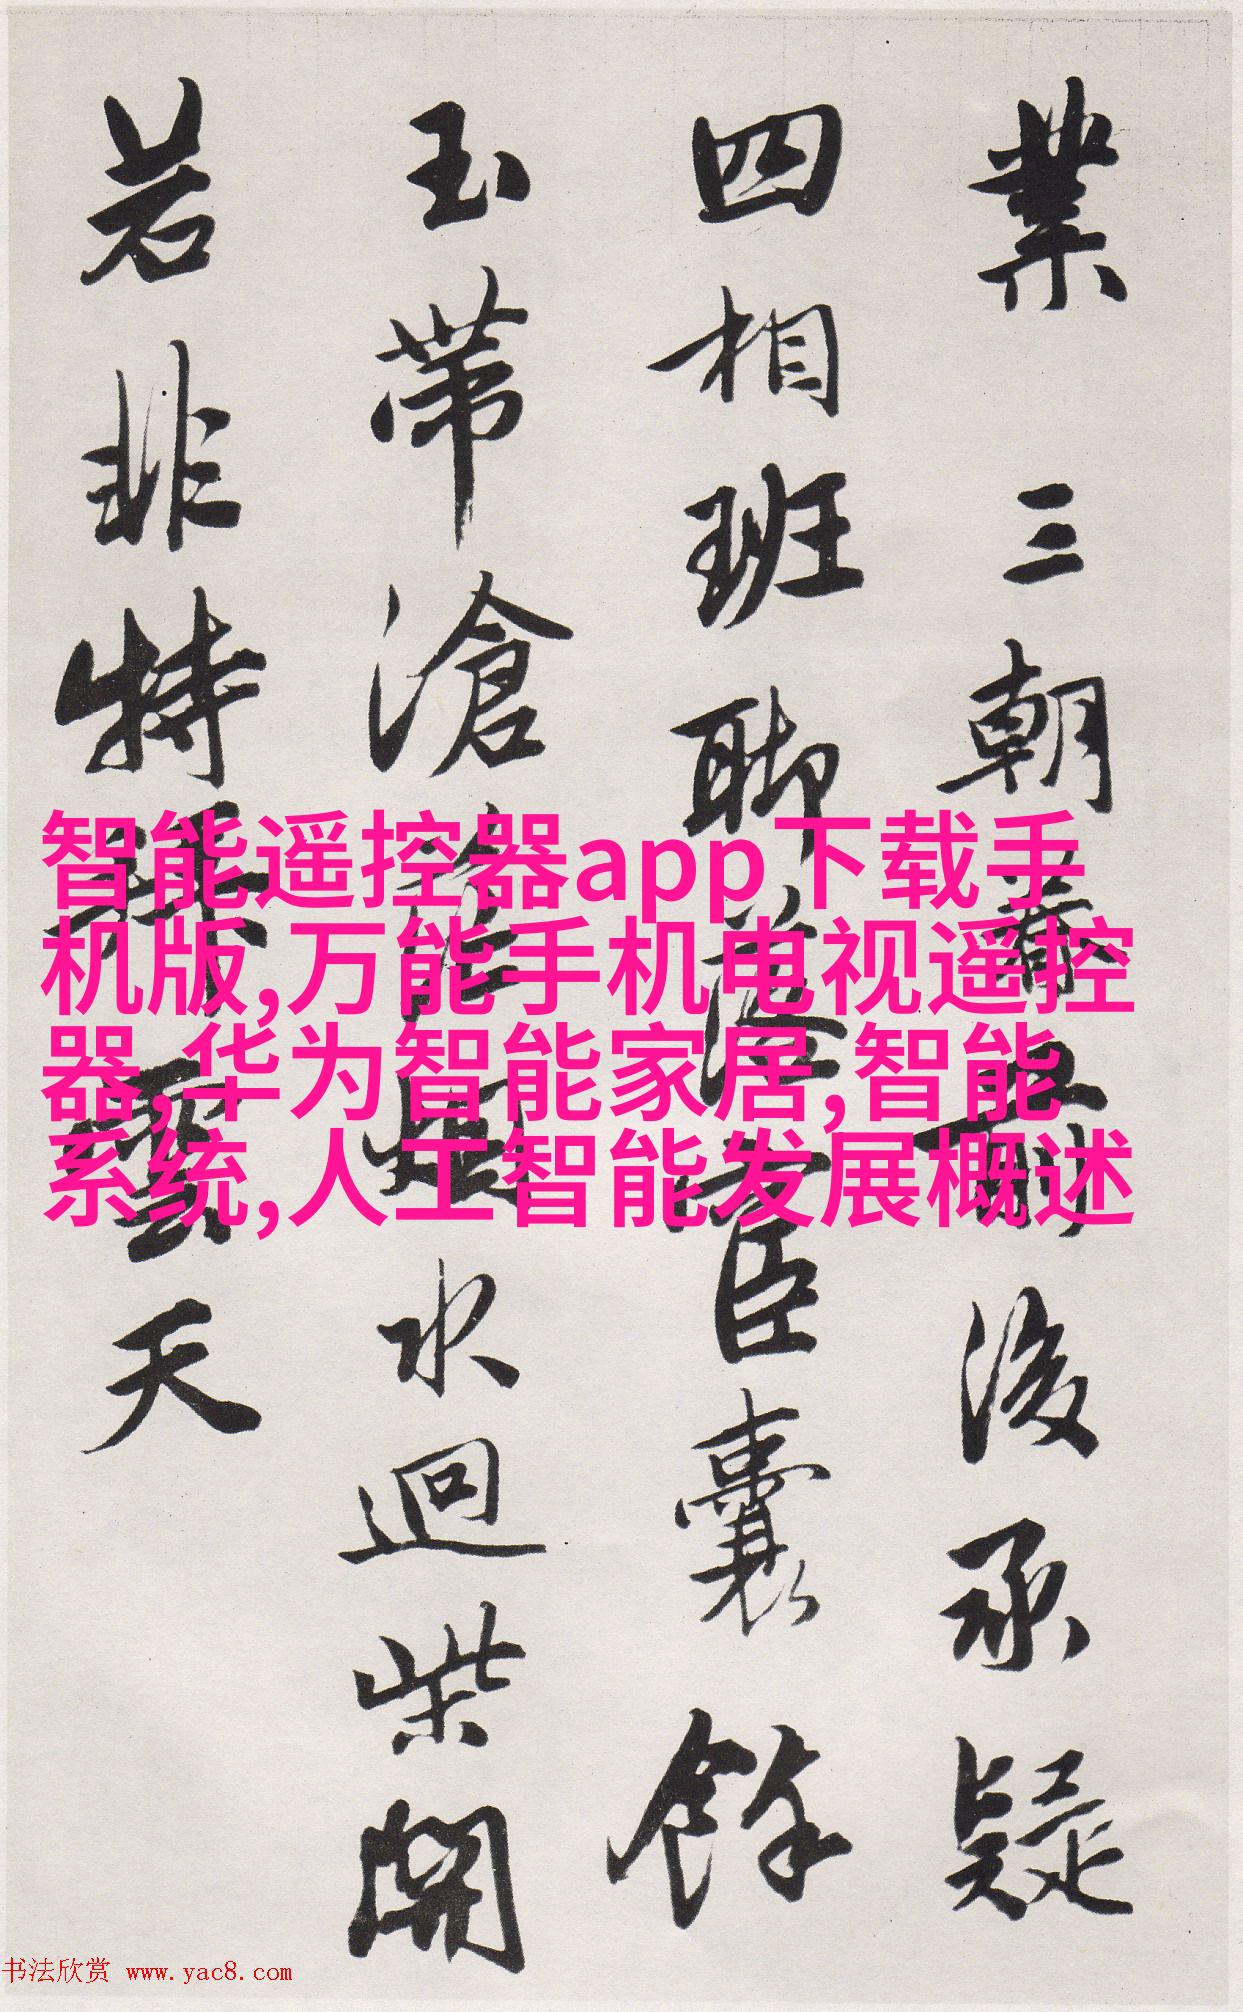 業三朝前後承疑
四相班聊臣囊餘
玉帶滄水迴柴開
若非特雲天
智能遥控器app下载手
机版,万能手机电视遥控
器,华为智能家居,智能
系统,人工智能发展概述
书法欣赏 www.yac8.com